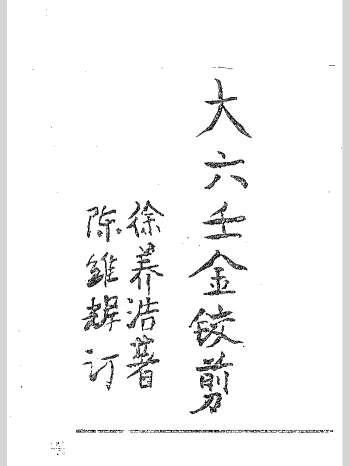 大六壬金铰剪
徐养浩著
陈维辉订